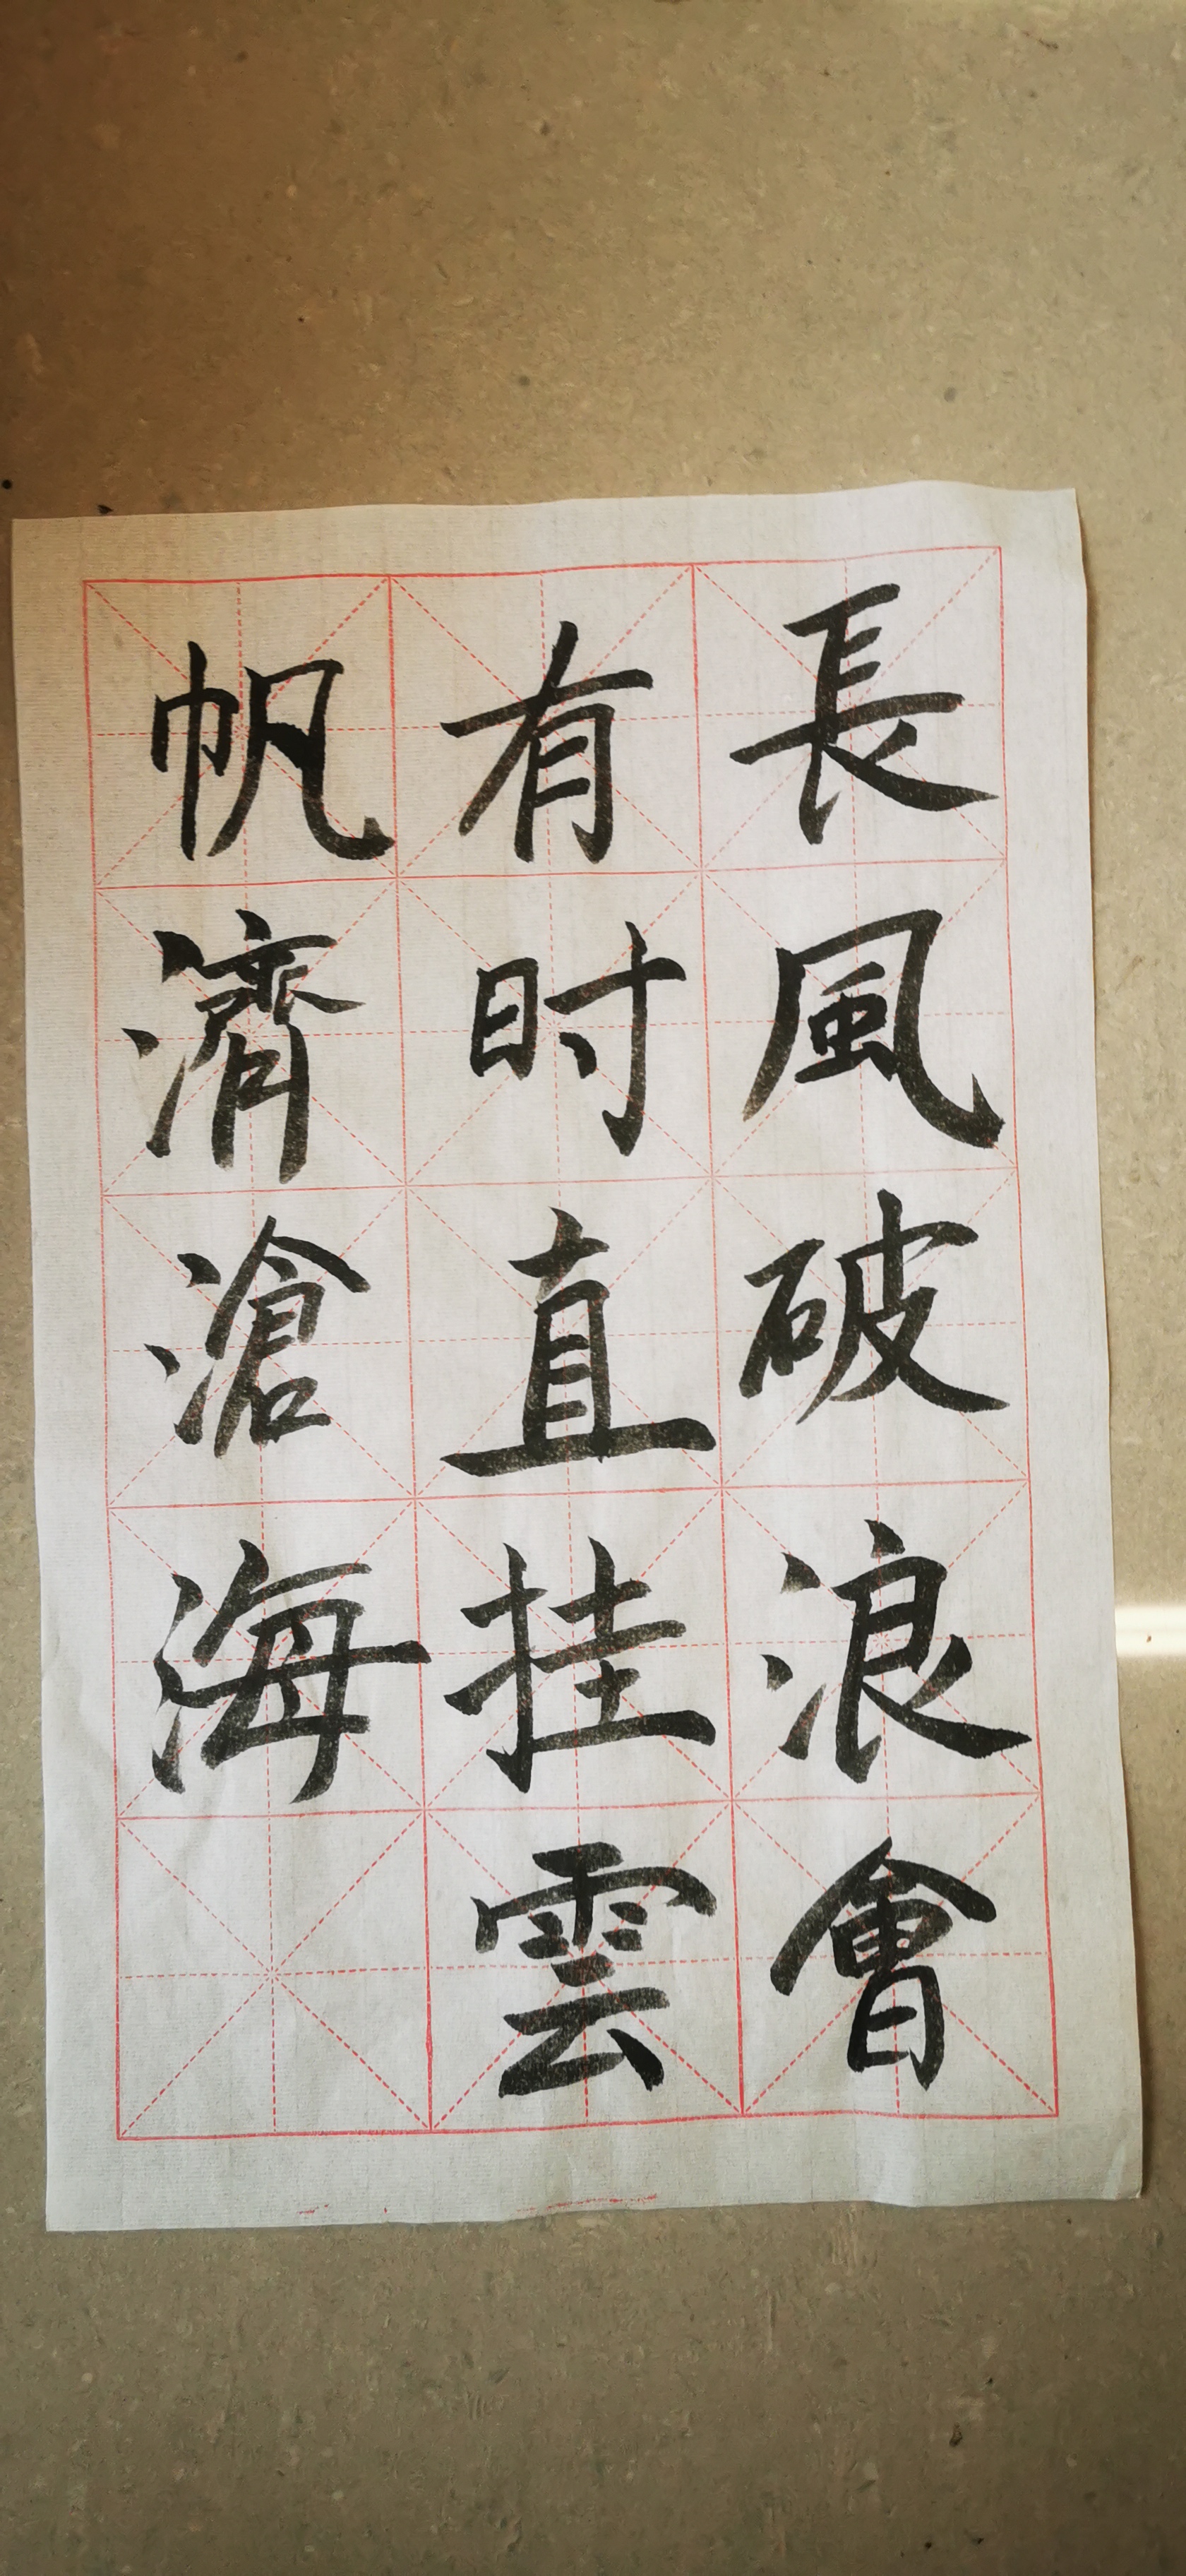 長風破浪會
有时直挂雲
帆濟滄海